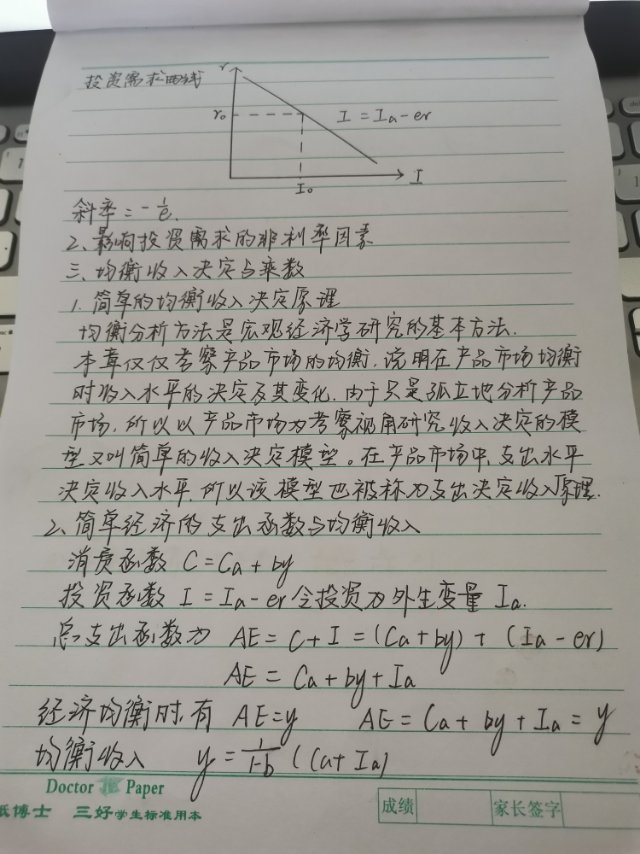 投资需求曲线
r
r₀
I = Ia - er
I₀
I
斜率 = -1/e.
2、影响投资需求的非利率因素
三、均衡收入决定与乘数
1. 简单的均衡收入决定原理
均衡分析方法是宏观经济学研究的基本方法.
本章仅仅考察产品市场的均衡, 说明在产品市场均衡
时收入水平的决定及其变化. 由于只是孤立地分析产品
市场, 所以以产品市场为考察视角研究收入决定的模
型又叫简单的收入决定模型。在产品市场中, 支出水平
决定收入水平, 所以该模型也被称为支出决定收入原理.
2、简单经济的支出函数与均衡收入
消费函数 C = Ca + by
投资函数 I = Ia - er 令投资为外生变量 Ia.
总支出函数为 AE = C + I = (Ca + by) + (Ia - er)
AE = Ca + by + Ia
经济均衡时, 有 AE = y AE = Ca + by + Ia = y
均衡收入 y = 1/1-b (Ca + Ia)
Doctor Paper
纸博士 三好学生标准用本
成绩 家长签字